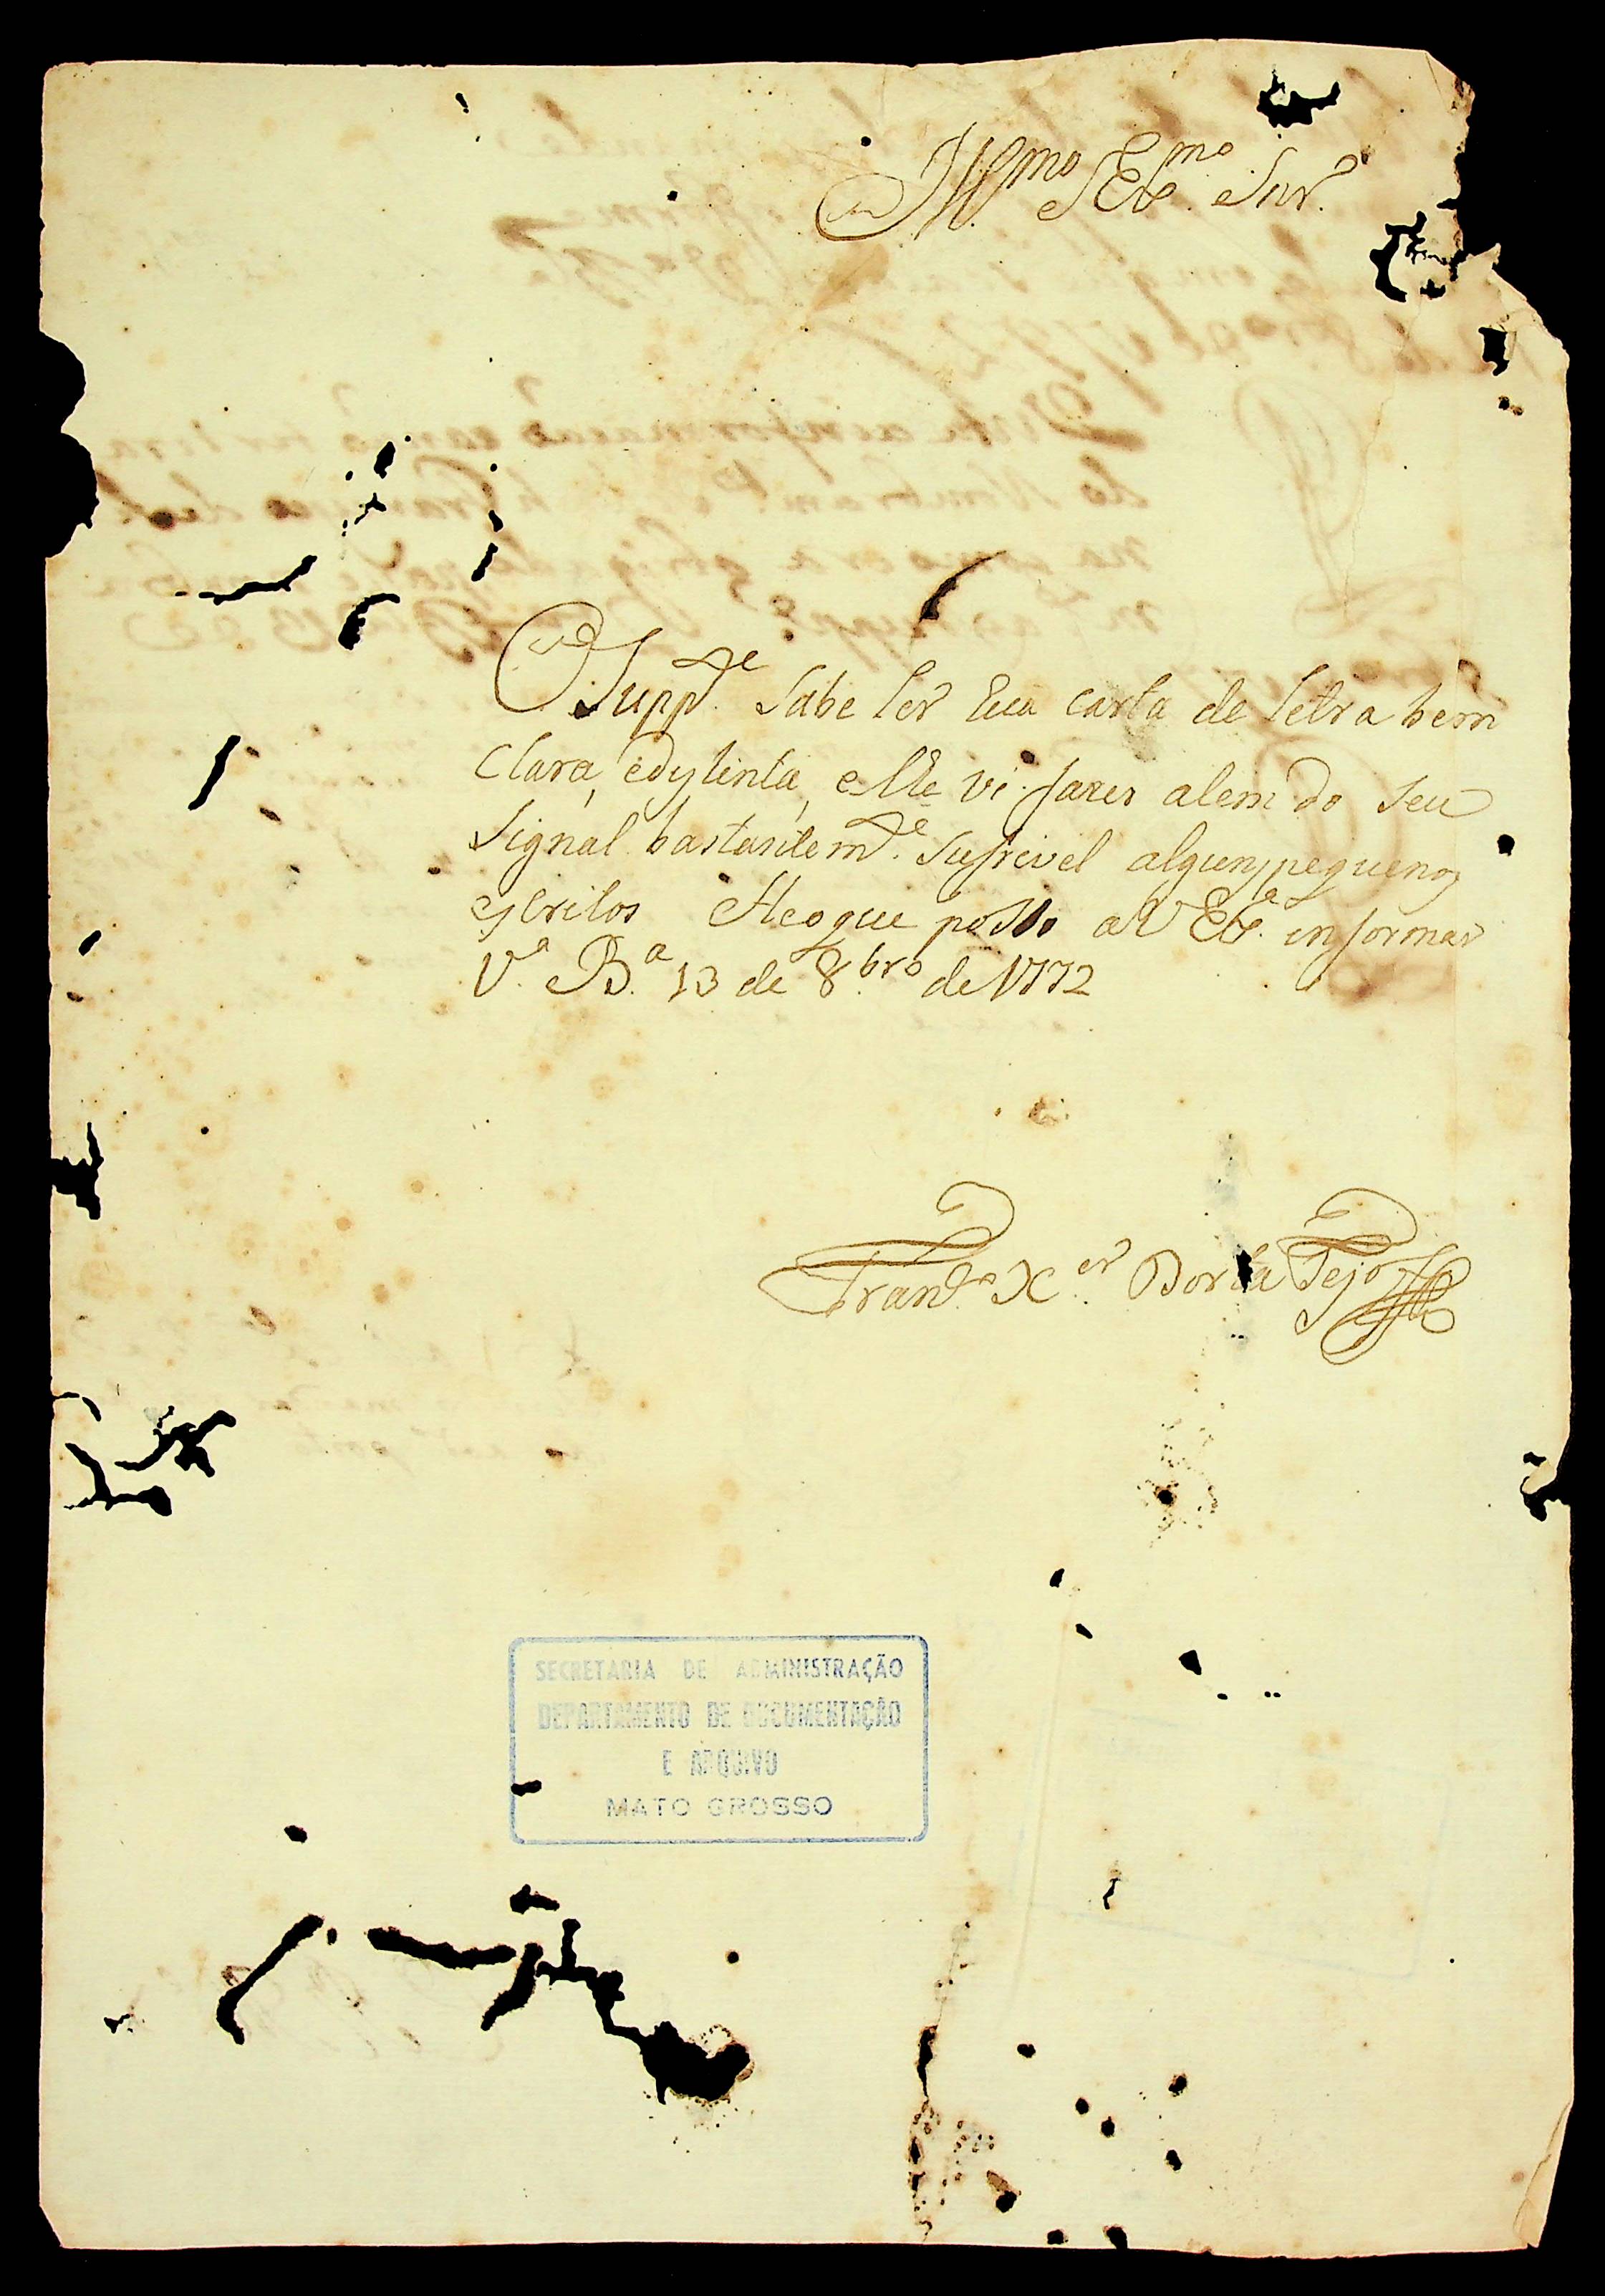 Ill.mo e Ex.mo Snr.
O Supp.te Sabe ler hua carta de letra bem
Clara, e dystinta, e lhe vi fazer alem do seu
Signal bastantem.te sufrivel alguns pequenos
escritos He o que posso a V Ex.a informar
V.a B.a 13 de 8.bro de 1772
Fran.co X.er Borja Tejo
SECRETARIA DE ADMINISTRAÇÃO
DEPARTAMENTO DE DOCUMENTAÇÃO
E ARQUIVO
MATO GROSSO